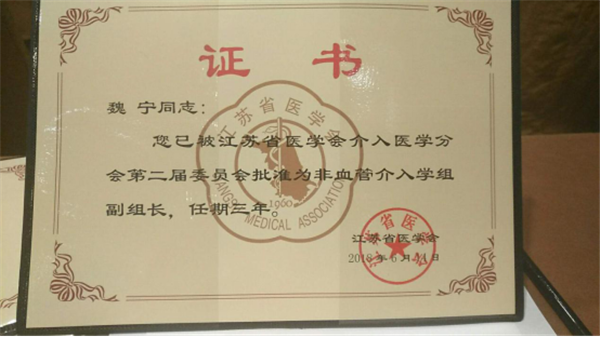 证 书
魏 宁同志：
您已被江苏省医学会介入医学分
会第二届委员会批准为非血管介入学组
副组长，任期三年。
江苏省医学会
JIANGSU MEDICAL ASSOCIATION
1960
江苏省医学会
江苏省医学会